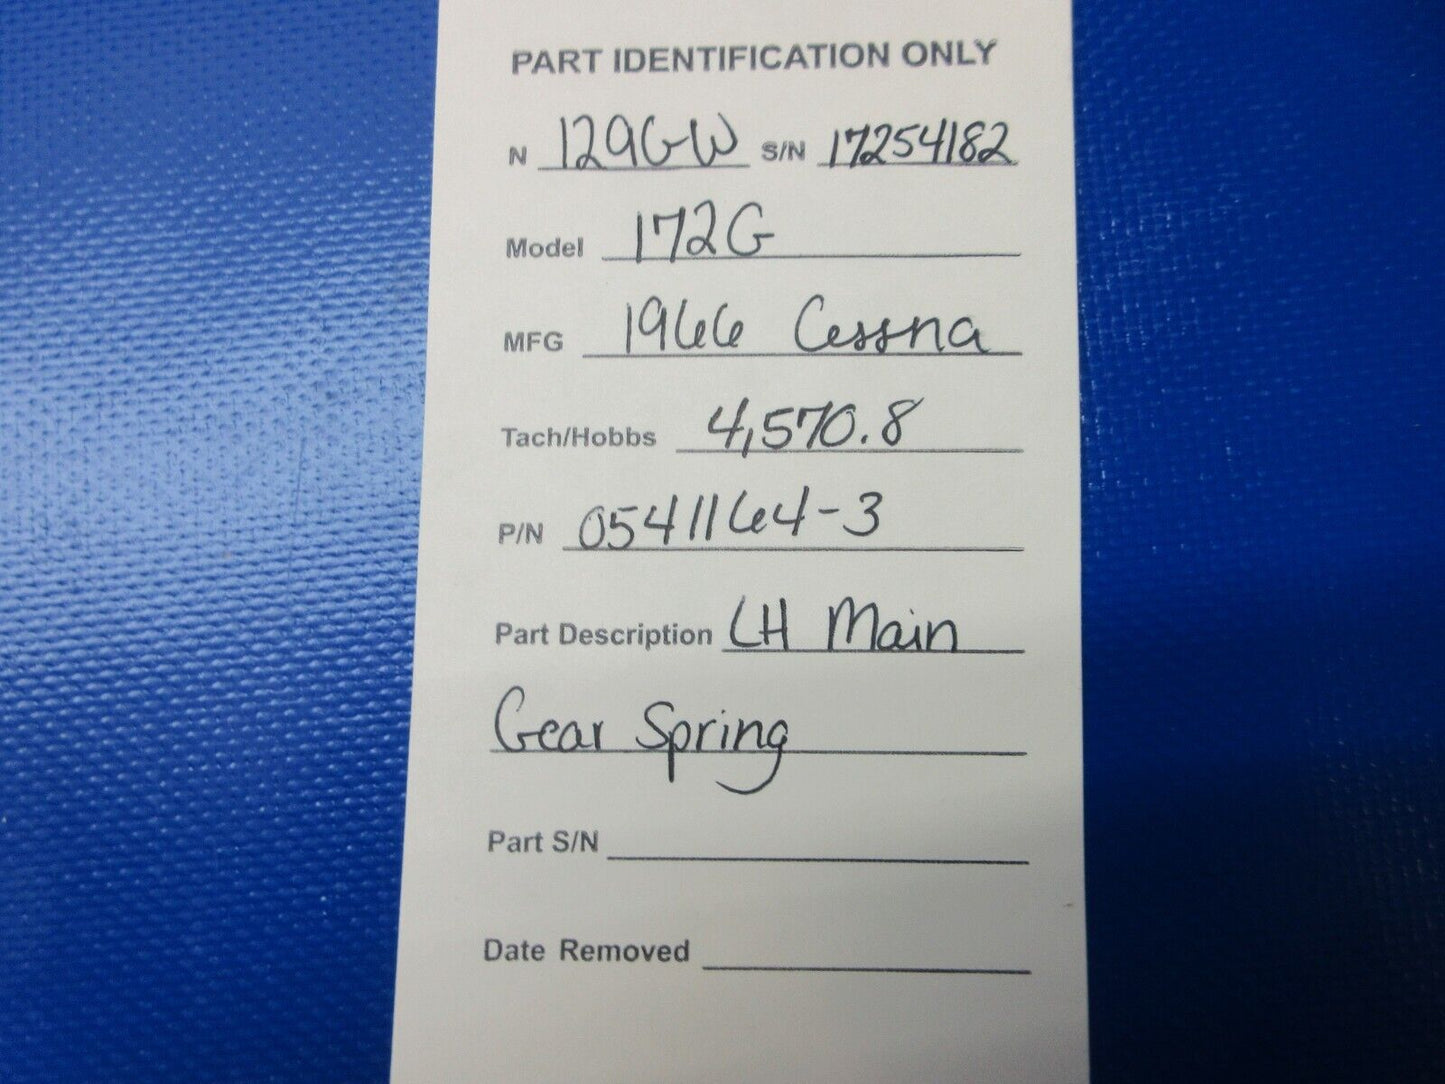 PART IDENTIFICATION ONLY
N 129GW S/N 17254182
Model 172G
MFG 1966 Cessna
Tach/Hobbs 4,570.8
P/N 0541164-3
Part Description LH Main
Gear Spring
Part S/N
Date Removed